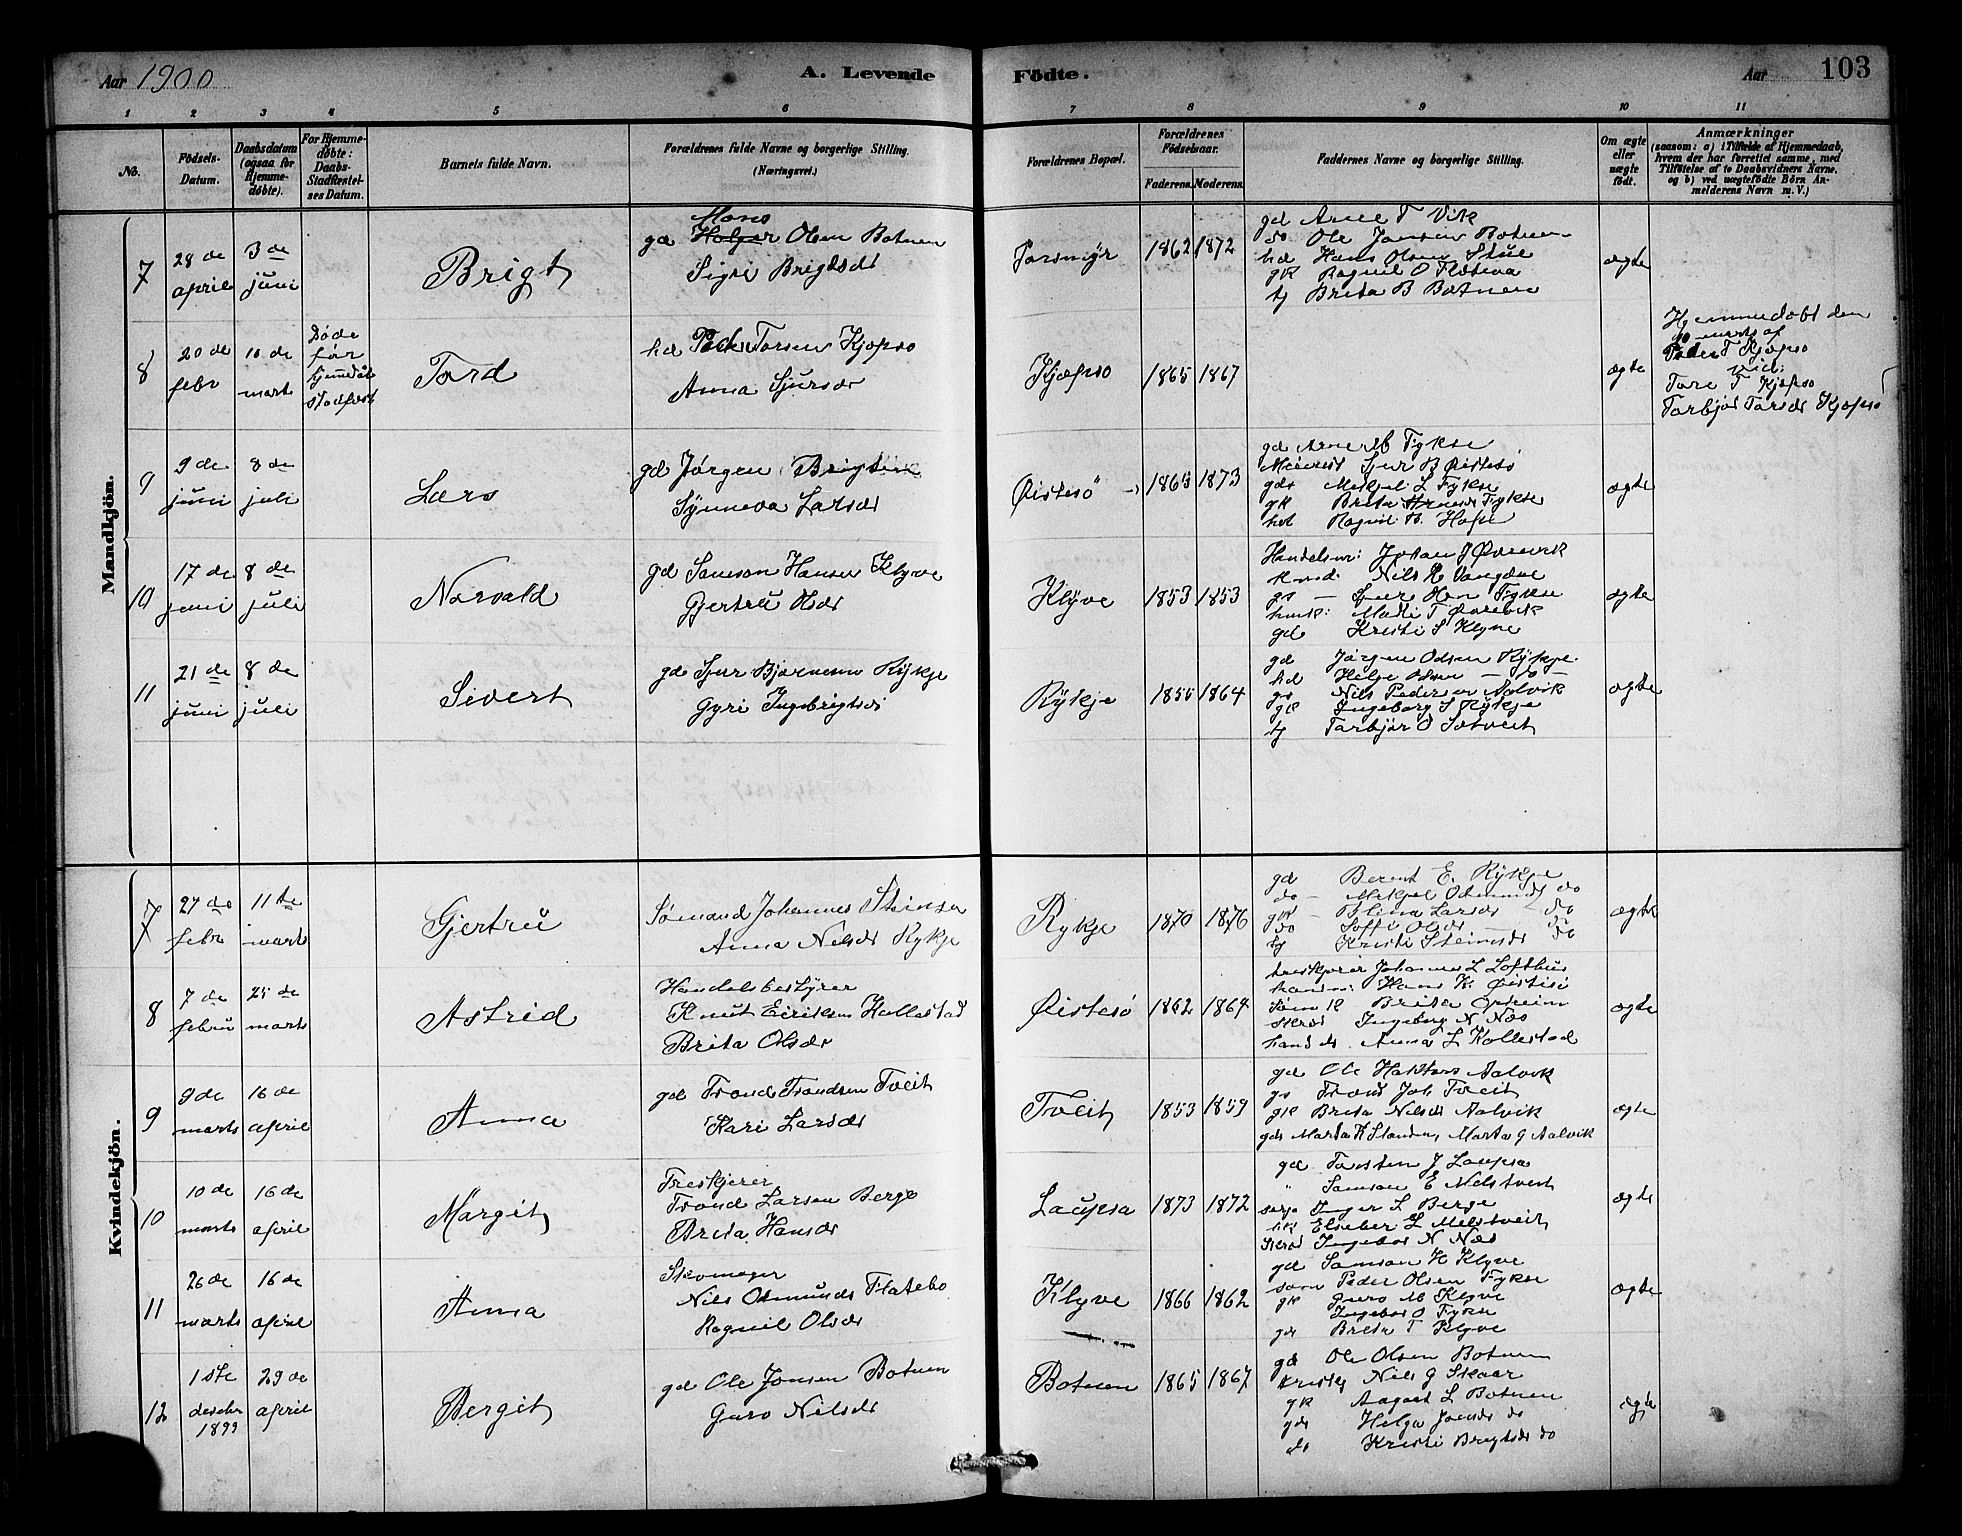 Aar 1900
A. Levende
Födte.
Aar
103
1 2 3 4 5 6 7 8 9 10 11
No.
Födsels-Datum.
Daabsdatum (ogsaa for Hjemme-døbte).
For Hjemme-døbte: Daabs-Stadfæstel-ses Datum.
Barnets fulde Navn.
Forældrenes fulde Navne og borgerlige Stilling. (Næringsvei.)
Forældrenes Bopæl.
Forældrenes Födselsaar.
Faderens. Moderens.
Faddernes Navne og borgerlige Stilling.
Om ægte eller uægte født.
Anmærkninger
(saasom: a) i Tilfælde af Hjemmedaab, hvem der har forrettet samme, med Tilföielse af to Daabsvidners Navne, og b) ved uægtefödte Börn An-melderens Navn m. V.)
Mandkjön.
7
28 de april
3 de juni
Brigt
Mons
gd Helger Olsen Botnen
Sigri Brigtsdr
Porsmyr
1862 1872
gd Arne T Vik
do Ole Jonsen Botnen
hd Hans Olsen Stue
gk Ragnil O Flotva
tj Brita B Botnen
ægte
8
20 de febr
10 de marts
Døde før hjemmedåb stadfæst
Tord
hd Peder Torsen Kjøpso
Anna Sjursdr
Kjøpso
1865 1867
ægte
Hjemmedøbt den
10 marts af
Peder T Kjøpso
vid:
Tore T Kjøpso
Torbjør Torsdr Kjøpso
9
9 de juni
8 de juli
Lars
gd Jørgen Brigtsen
Synneva Larsdr
Øistesö
1865 1873
gd Arne M Fykse
Meierest Sjur B Øistesö
gds Mikjel L Fykse
gk Brita Arnesdr Fykse
hd Ragnil B. Hope
ægte
10
17 de juni
8 de juli
Norvald
gd Samson Hansen Klyve
Gjertru Olsdr
Klyve
1853 1853
Handelsm: Johan J Øvrevik
hmd. Nils H Vangdal
gs — Sjur Olsen Fykse
hmk: Madli T Øvrevik
gd Kristi S Klyve
ægte
11
21 de juni
8 de juli
Sivert
gd Sjur Bjørnsen Rykje
Gyri Ingebrigtsdr
Rykje
1855 1864
gd Jørgen Odsen Rykje
hd Helje Odsen — do —
gs Nils Pedersen Aalvik
gk Ingeborg S Rykje
tj Torbjør O Sotveit
ægte
Kvindekjön.
7
27 de febr
11 te marts
Gjertru
Sømand Johannes Steinsen
Anna Nilsdr Rykje
Rykje
1870 1876
gd Berent E. Rykje
do — Mikjel Odmunds do
gk — Elina Larsdr — do
do Soffi Olsdr — do
tj Kristi Steinsdr do
ægte
8
7 de febru
25 de marts
Astrid
Handelsbestyrer
Knut Eiriksen Hollestad
Brita Olsdr
Øistesö
1862 1864
treskjærer Johannes L Lofthus
handm: Hans K. Øistesö
Tøm k Brita Orheim
Skræd Ingeborg N Næs
hand dr Anna L Kollestad
ægte
9
9 de marts
16 de april
Anna
gd Trond Trondsen Tveit
Kari Larsdr
Tveit
1853 1859
gd Ole Haktors Aalvik
gs Trond Joh Tveit
gk Brita Nilsdr Aalvik
gdr Marta K Standen, Marta G Aalvik
ægte
10
10 de marts
16 de april
Margit
Treskjerer
Trond Larsen Berge
Brita Hansdr
Laupsa
1873 1872
gd Torsten J Laupsa
" Samson E Melstveit
Inger L Berge
hk Elseber L Melstveit
Skræd Ingebor N Næs
ægte
11
26 de marts
16 de april
Anna
Skomager
Nils Odmunds Flatebø
Ragnil Olsdr
Klyve
1866 1862
gd Samson H Klyve
søm Peder Olsen Fykse
gk Guro M Klyve
Ingebor O Fykse
gdr Brita T Klyve
ægte
12
1 ste decbr 1899
29 de april
Bergit
gd Ole Jonsen Botnen
Guro Nilsdr
Botnen
1865 1867
gd Ole Olsen Botnen
Nils G Skaar
gk Aagot L Botnen
gdr Helga Joensdr do
do Kristi Brigtsdr do
ægte